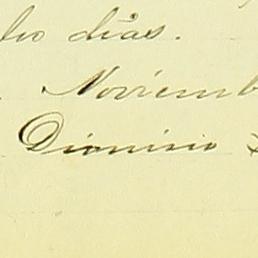 dias.
Noviemb
Dionisio